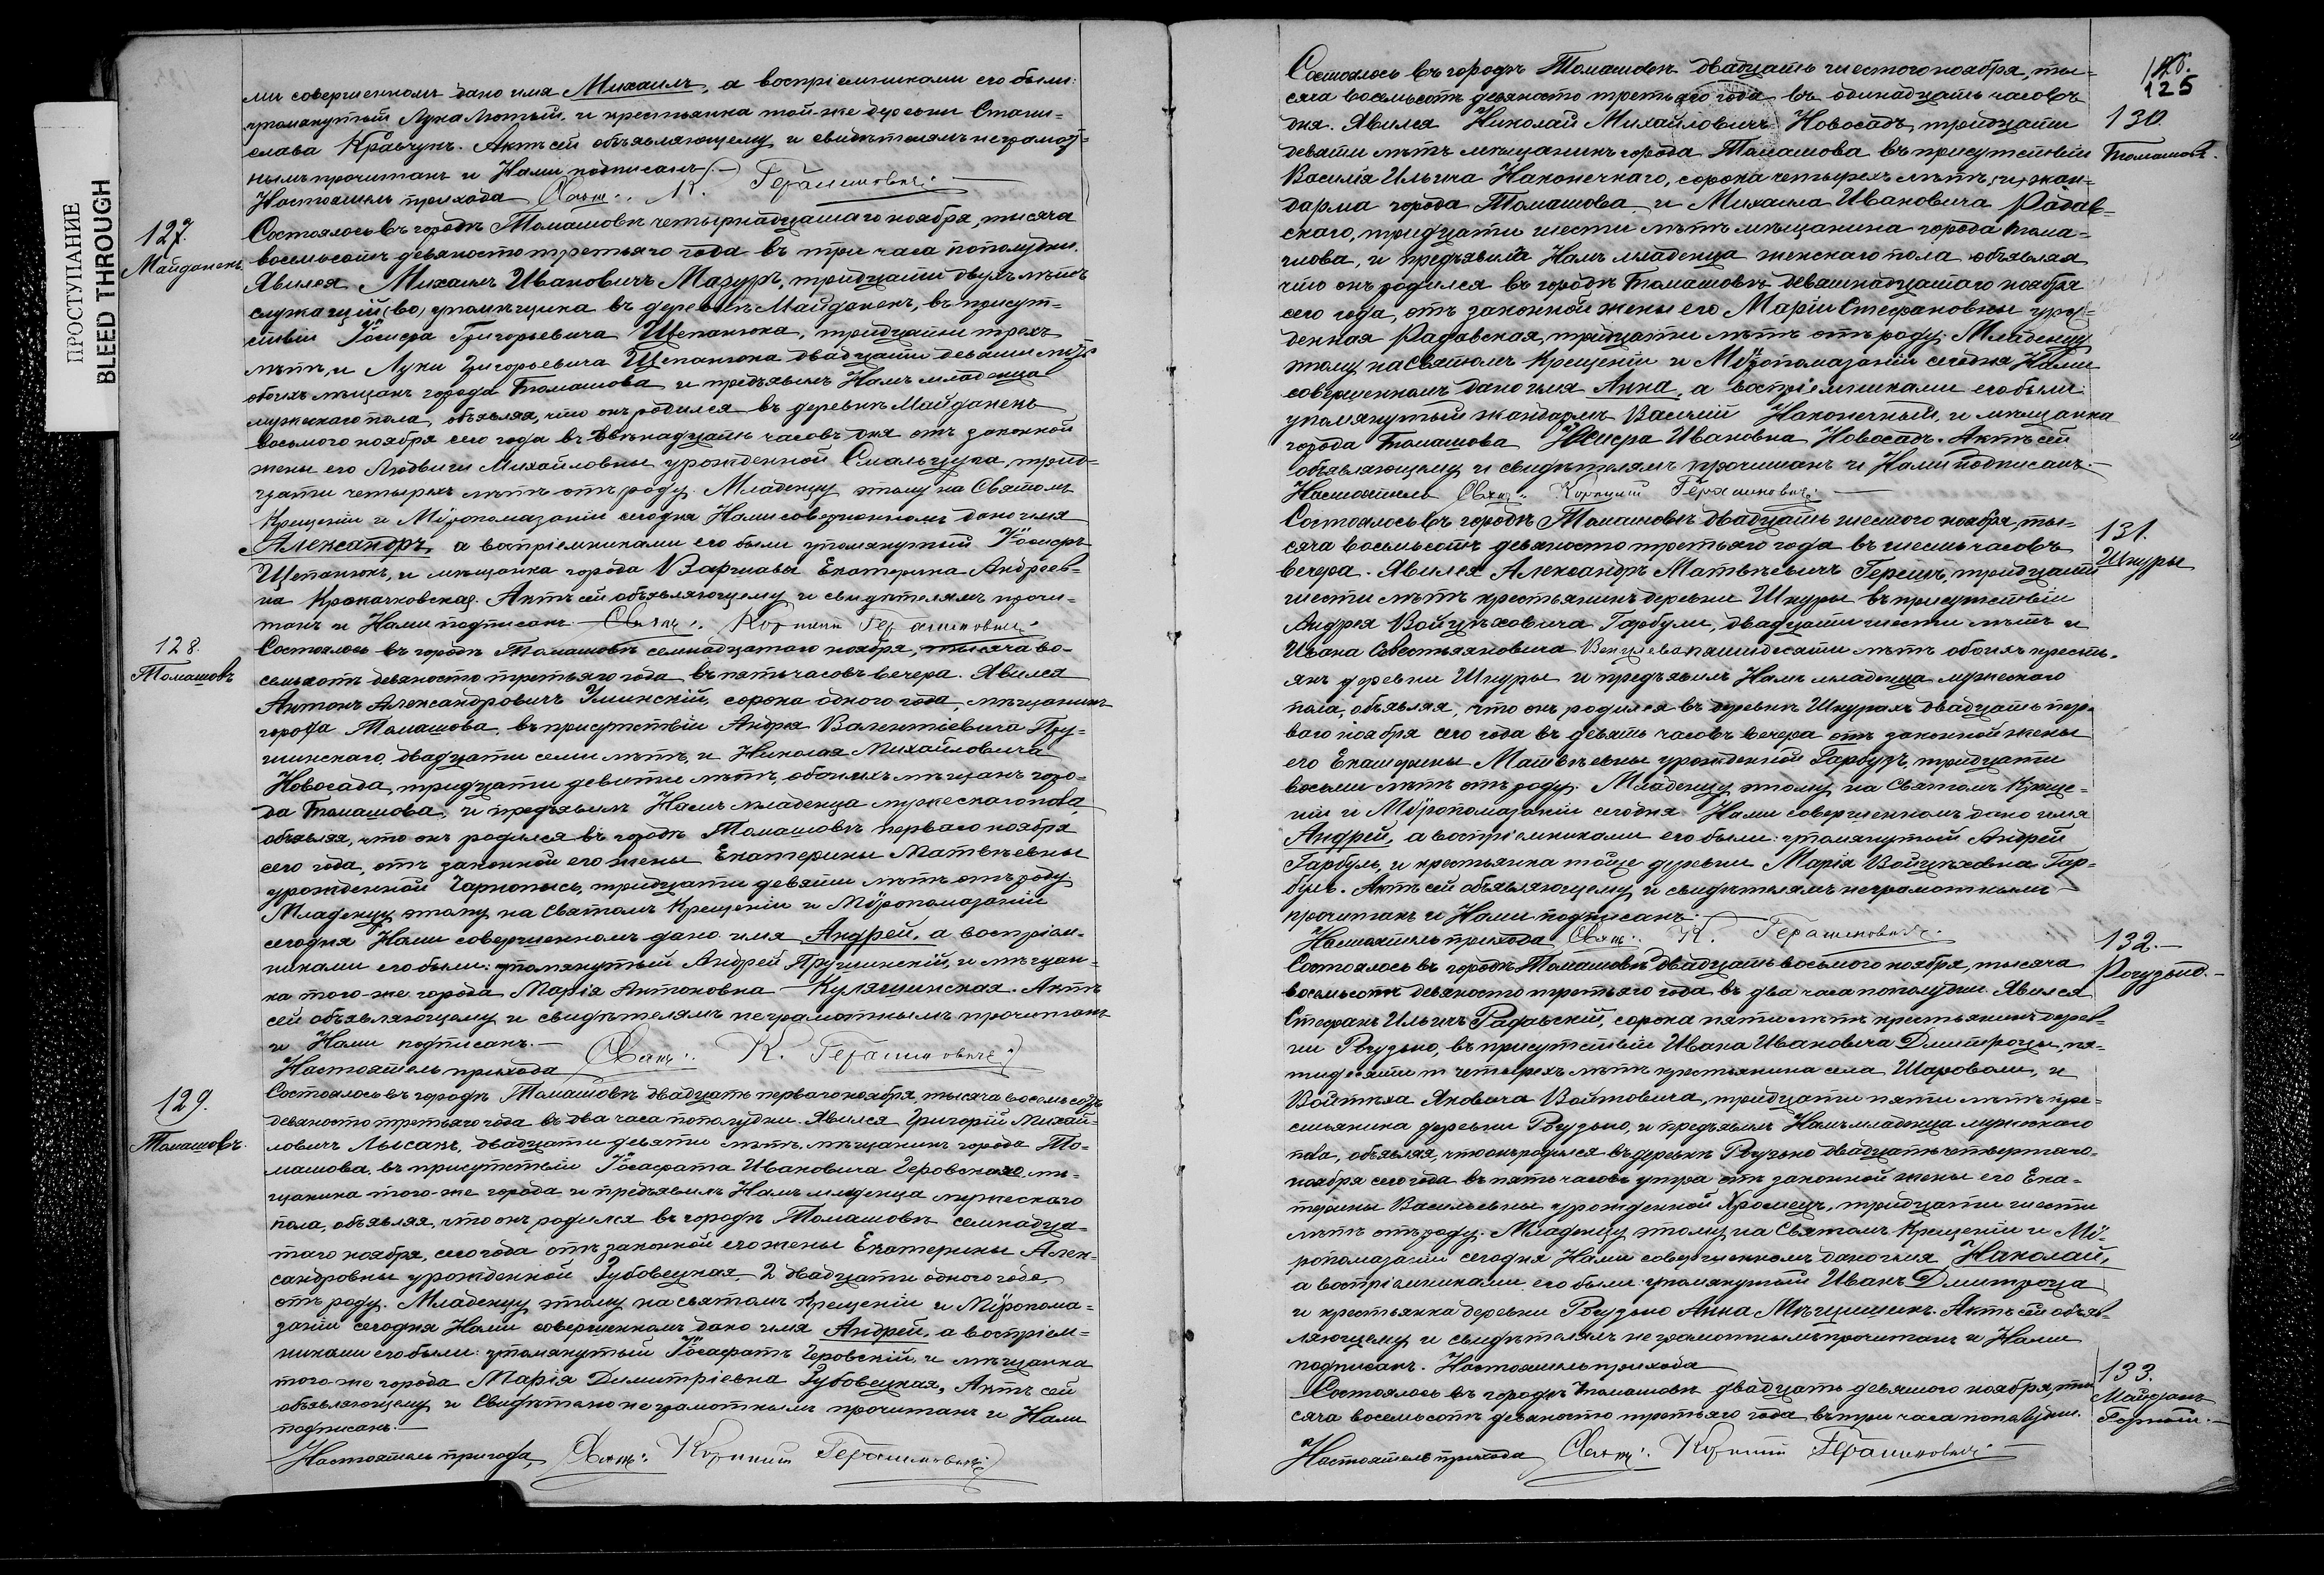 ПРОСТУПАНИЕ
BLEED THROUGH
ми совершенномъ дано имя Михаилъ, а воспріемниками его были:
упомянутый Лука Лютый, и крестьянка той-же деревни Стани-
слава Кравчукъ. Актъ сей объявляющему и свидѣтелямъ неграмот-
нымъ прочитанъ и Нами подписанъ.
Настоятель прихода Свящ: К. Герасимовичъ.
127.
Майданекъ
Состоялось въ городѣ Томашовѣ четырнадцатаго ноября, тысяча
восемьсотъ девяносто третьяго года въ три часа пополудни.
Явился Михаилъ Ивановичъ Мазуръ, тридцати двухъ лѣтъ
служащій (во) у помѣщика въ деревнѣ Майданекъ, въ присут-
ствіи Іосифа Григорьевича Щепанюка, тридцати трехъ
лѣтъ, и Луки Григорьевича Щепанюка двадцати девяти лѣтъ
обоихъ мѣщанъ города Томашова и предъявилъ Намъ младенца
мужескаго пола, объявляя, что онъ родился въ деревнѣ Майданекъ
восьмого ноября сего года въ двѣнадцать часовъ дня отъ законной
жены его Людвиги Михайловны урожденной Смальчука, трид-
цати четырехъ лѣтъ отъ роду. Младенцу этому на Святомъ
Крещеніи и Мѵропомазаніи сегодня Нами совершенномъ дано имя
Александръ, а воспріемниками его были упомянутый Іосифъ
Щепанюкъ, и мѣщанка города Варшавы Екатерина Андреев-
на Крокачковская. Актъ сей объявляющему и свидѣтелямъ прочи-
танъ и Нами подписанъ. Свящ: Корнилій Герасимовичъ.
128.
Томашовъ
Состоялось въ городѣ Томашовѣ семнадцатаго ноября, тысяча во-
семьсотъ девяносто третьяго года въ пять часовъ вечера. Явился
Антонъ Александровичъ Улинскій, сорока одного года, мѣщанинъ
города Томашова, въ присутствіи Андрея Валентіевича Пру-
шинскаго, двадцати семи лѣтъ, и Николая Михайловича
Новосада, тридцати девяти лѣтъ, обоихъ мѣщанъ горо-
да Томашова, и предъявилъ Намъ младенца мужескаго пола,
объявляя, что онъ родился въ городѣ Томашовѣ перваго ноября
сего года, отъ законной его жены Екатерины Матвѣевны
урожденной Чарнопысь, тридцати девяти лѣтъ отъ роду
Младенцу этому на Святомъ Крещеніи и Мѵропомазаніи
сегодня Нами совершенномъ дано имя Андрей, а воспріем-
никами его были: упомянутый Андрей Прушинскій, и мѣщан-
ка того-же города Марія Антоновна Куляшинская. Актъ
сей объявляющему и свидѣтелямъ неграмотнымъ прочитанъ
и Нами подписанъ.
Настоятель прихода Свящ: К. Герасимовичъ
129.
Томашовъ.
Состоялось въ городѣ Томашовѣ двадцать перваго ноября, тысяча восемьсотъ
девяносто третьяго года въ два часа пополудни. Явился Григорій Михай-
ловичъ Лысакъ, двадцати девяти лѣтъ, мѣщанинъ города То-
машова, въ присутствіи Іосафата Ивановича Черовскаго мѣ-
щанина того-же города и предъявилъ Намъ младенца мужескаго
пола, объявляя, что онъ родился въ городѣ Томашовѣ семнадца-
таго ноября, сего года отъ законной его жены Екатерины Алек-
сандровны урожденной Зубовецкая, 2 двадцати одного года
отъ роду. Младенцу этому на святомъ крещеніи и Мѵропома-
заніи сегодня Нами совершенномъ дано имя Андрей, а воспріем-
никами его были: упомянутый Іосафатъ Черовскій, и мѣщанка
того-же города Марія Димитріевна Зубовецкая, Актъ сей
объявляющему и Свидѣтелю неграмотнымъ прочитанъ и Нами
подписанъ.
Настоятель прихода, Свящ: Корнилій Герасимовичъ
125
130
Томашовъ.
Состоялось въ городѣ Томашовѣ двадцать шестого ноября, ты-
сяча восемьсотъ девяносто третьяго года въ одинадцать часовъ
дня. Явился Николай Михайловичъ Новосадъ, тридцати
девяти лѣтъ мѣщанинъ города Томашова въ присутствіи
Василія Ильича Наконечнаго, сорока четырехъ лѣтъ, жан-
дарма города Томашова и Михаила Ивановича Радав-
скаго, тридцати шести лѣтъ мѣщанина города Тома-
шова, и предъявилъ Намъ младенца женскаго пола объявляя
что онъ родился въ городѣ Томашовѣ двѣнадцатаго ноября
сего года, отъ законной жены его Маріи Стефановны урож-
денная Радавская, тридцати лѣтъ отъ роду. Младенцу
этому на Святомъ Крещеніи и Мѵропомазаніи сегодня Нами
совершенномъ дано имя Анна, а воспріемниками его были:
упомянутый жандармъ Василій Наконечный, и мѣщанка
города Томашова Іосифа Ивановна Новосадъ. Актъ сей
объявляющему и свидѣтелямъ прочитанъ и Нами подписанъ.
Настоятель Свящ: Корнилій Герасимовичъ.
131.
Шкуры
Состоялось въ городѣ Томашовѣ двадцать шестого ноября, ты-
сяча восемьсотъ девяносто третьяго года въ шесть часовъ
вечера. Явился Александръ Матвѣевичъ Герецъ, тридцати
шести лѣтъ крестьянинъ деревни Шкуры въ присутствіи
Андрея Войцѣховича Гарбули, двадцати шести лѣтъ и
Ивана Себестьяновича пятидесяти лѣтъ обоихъ кресть-
янъ деревни Шкуры и предъявилъ Намъ младенца мужескаго
пола, объявляя, что онъ родился въ деревнѣ Шкурахъ двадцать пер-
ваго ноября сего года въ девять часовъ вечера отъ законной жены
его Екатерины Матвѣевны урожденной Гарбузъ, тридцати
восьми лѣтъ отъ роду. Младенцу этому на Святомъ Креще-
ніи и Мѵропомазаніи сегодня Нами совершенномъ дано имя
Андрей, а воспріемниками его были: упомянутый Андрей
Гарбуль, и крестьянка тойже деревни Марія Войцѣховна Гар-
буль. Актъ сей объявляющему и свидѣтелямъ неграмотнымъ
прочитанъ и Нами подписанъ.
Настоятель прихода Свящ: К. Герасимовичъ.
132.
Рогузьно.
Состоялось въ городѣ Томашовѣ двадцать восьмого ноября, тысяча
восемьсотъ девяносто третьяго года въ два часа пополудни. Явился
Стефанъ Ильичъ Радавскій, сорока пяти лѣтъ крестьянинъ дерев-
ни Рогузьно, въ присутствіи Ивана Ивановича Дмитроцы, пя-
тидесяти четырехъ лѣтъ крестьянина села Шароволи, и
Войтѣха Яковича Войтовича, тридцати пяти лѣтъ кре-
стьянина деревни Рогузьно, и предъявилъ Намъ младенца мужескаго
пола, объявляя, что онъ родился въ деревнѣ Рогузьно двадцать четвертаго
ноября сего года въ пять часовъ утра отъ законной жены его Ека-
терины Васильевны урожденной Хромецъ, тридцати шести
лѣтъ отъ роду. Младенцу этому на Святомъ Крещеніи и Мѵ-
ропомазаніи сегодня Нами совершенномъ дано имя Николай,
а воспріемниками его были: упомянутый Иванъ Дмитроца
и крестьянка деревни Рогузьно Анна Мѣцишинъ. Актъ сей объяв-
ляющему и свидѣтелямъ неграмотнымъ прочитанъ и Нами
подписанъ. Настоятель прихода
133.
Майданъ
Горный.
Состоялось въ городѣ Томашовѣ двадцать девятого ноября, ты-
сяча восемьсотъ девяносто третьяго года въ три часа пополудни.
Настоятель прихода Свящ: Корнилій Герасимовичъ.